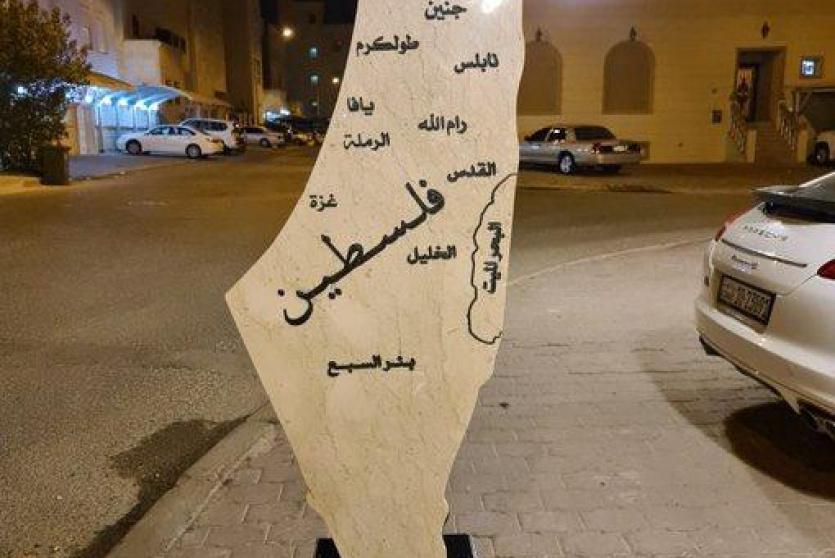 جنين
طولكرم
نابلس
يافا
رام الله
الرملة
القدس
غزة
فلسطين
الخليل
البحر الميت
بئر السبع